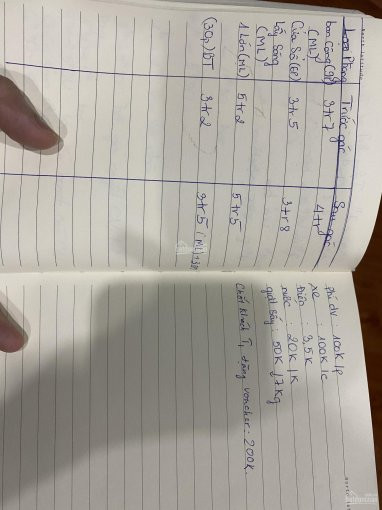 Loại Phòng Trước góc Sau góc
ban công (gp) 3tr7 4tr
(ML)
Cửa Sổ (gp) 3tr5 3tr8
Lấy Sáng
(ML)
1 Lớn (ML) 5tr2 5tr5
(30p) DT 3tr2 3tr5 (ML)
Phí dv : 100K/p
xe : 100K/c
Điện : 3,5K
nước : 20K/K
giặt sấy : 50K/7kg
Chốt khách T, đăng voucher: 200K.